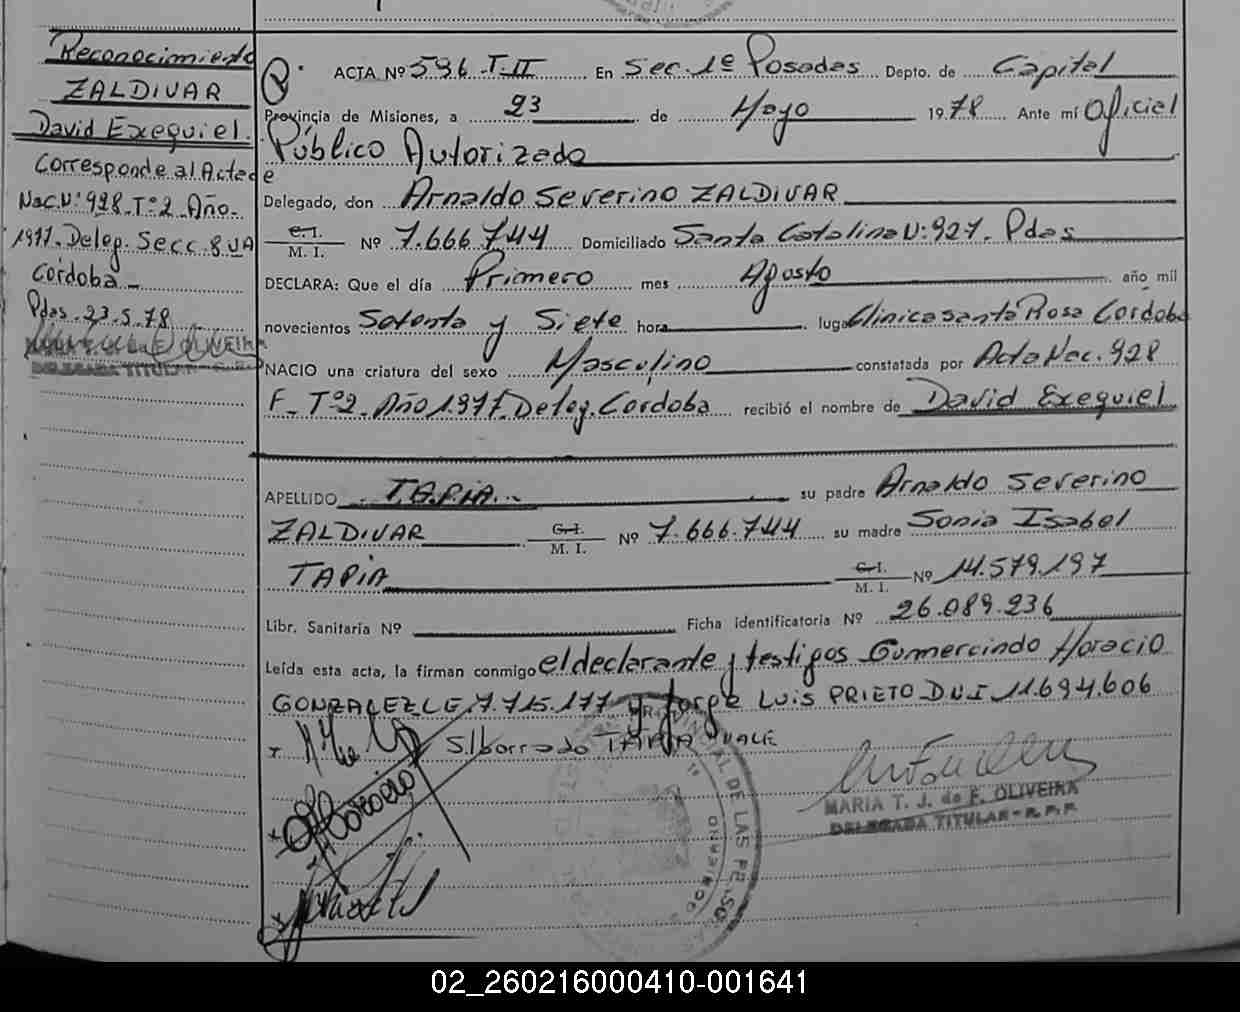 Reconocimiento
ZALDIVAR
David Exequiel.
Corresponde al Acta de
Nac. Nº 928. Tº 2. Año.
1977. Deleg. Secc. 8 VA
Córdoba.-
Pdas. 23.5.78
OLIVEIRA
DELEGADA TITULAR
R. ACTA Nº 596. T. II En Sec. 1º Posadas Depto. de Capital
Provincia de Misiones, a 23 de Mayo 1978 Ante mí Oficial
Público Autorizado
Delegado, don Arnaldo Severino ZALDIVAR
C.I. M. I. Nº 7.666.744 Domiciliado Santa Catalina Nº 927. Pdas
DECLARA: Que el día Primero mes Agosto año mil
novecientos Setenta y Siete hora lugar Clinica Santa Rosa Cordoba
NACIO una criatura del sexo Masculino constatada por Acta Nac. 928
F. Tº 2. Año 1.977. Deleg. Cordoba recibió el nombre de David Exequiel
APELLIDO TAPIA. su padre Arnaldo Severino
ZALDIVAR C.I. M. I. Nº 7.666.744 su madre Sonia Isabel
TAPIA C.I. M. I. Nº 14.579.197
Libr. Sanitaria Nº Ficha identificatoria Nº 26.089.236
Leída esta acta, la firman conmigo el declarante y testigos Gumercindo Horacio
GONZALEZ L.E. 7.715.177 y Jorge LUIS PRIETO D.N.I 11.694.606
S/borrado TAPIA VALE
MARIA T. J. de F. OLIVEIRA
DELEGADA TITULAR - R. P. P.
02_260216000410-001641